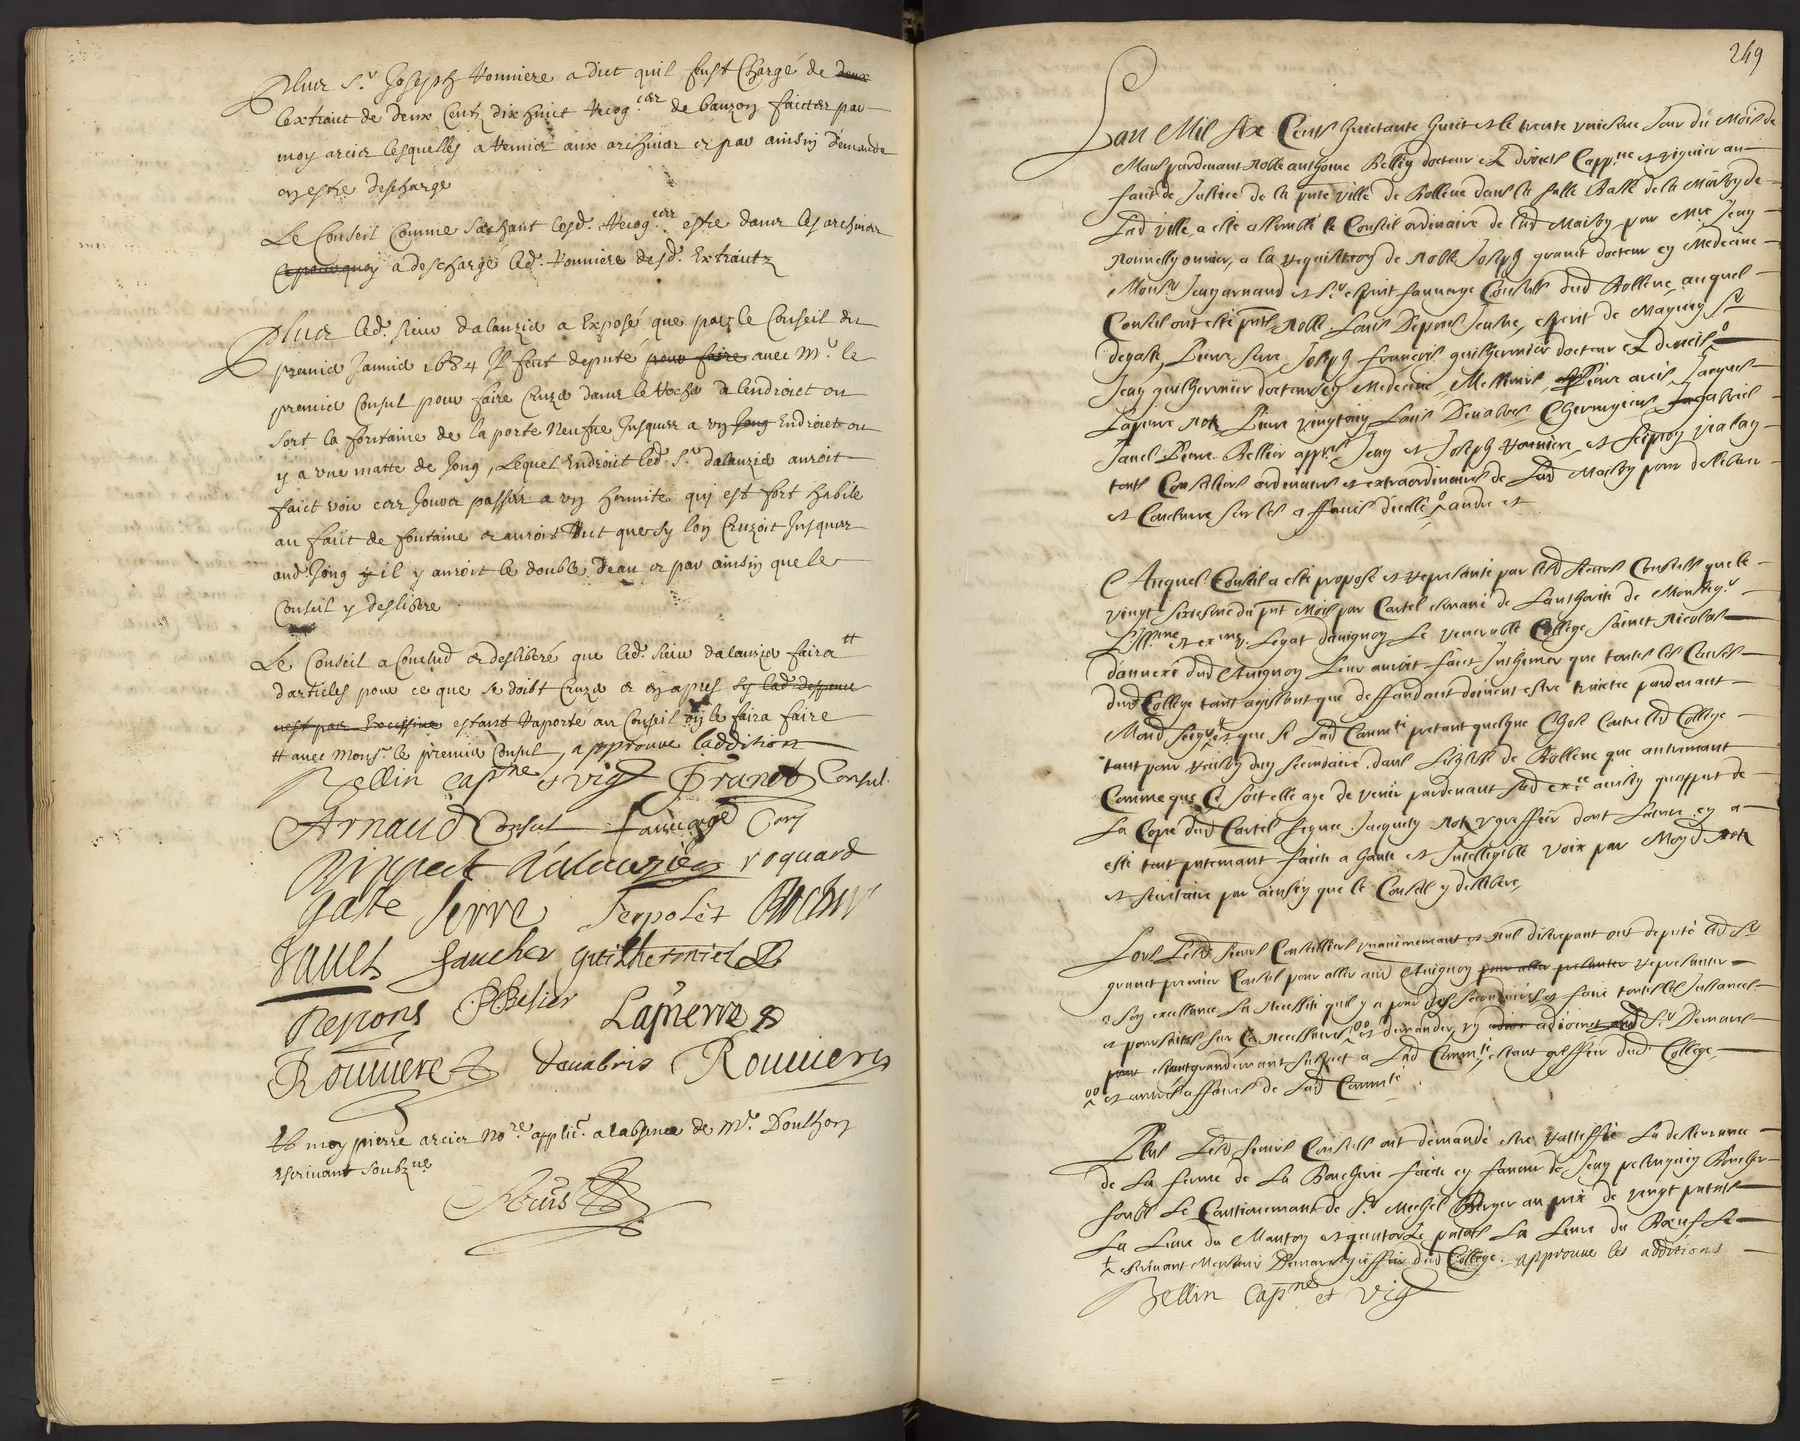 Plus Sr Joseph Rouviere a dict quil feust chargé de deux
lextraict de deux cents dixhuict recog.ces de bauzon faictes par
moy arcier lesquelles a remier aux archives et par ainsin demande
en estre descharge
Le Conseil comme sachant lesd. recog.ces estre dans les archives
a deschargé led. Rouviere desd. Extraictz
Plus led. sieur dalauzier a Exposé que par le Conseil du
premier Janvier 1684 Il fut deputé pour faire avec Mr le
premier Consul pour faire Cruzer dans le Rocher a lendroict ou
sort la fontaine de la porte Neufve Jusques a un Jong Endroict ou
y a une matte de Jong, Lequel Endroict led. Sr dalauzier auroit
faict voir ces Jours passés a un hermite qui est fort habile
au faict de fontaine et auroit dict que sy lon Cruzoit Jusques
aud. Jong il y auroit le double deau et par ainsin que le
Conseil y deslibere
Le Conseil a Conclud et deslibéré que led. sieur dalauzier faira #
darticles pour ce que se doibt Cruzer et en apres sy lad. despance
nest pas Excessive estant raporté au Conseil le faira faire
# avec Monsr le premier Consul, approuve laddition
Bellin capne et vigr Granet Consul
Arnaud Consul fauvage Con
Rippert dalauzier roquard
gaste serre serpolet Rocher
Jaués faucher guilhermier
Repons Bellier Lapierre
Rouviere Deuabris Rouviere
Et moy pierre arcier nore applic. a labsence de Mr. Donthon
escrivant soubzne
Arcis
249
Lan Mil six Cents huictante huict et le trente uniesme Jour du Mois de
Mars pardevant Noble anthoine Bellin docteur ez droicts Cappne et viguier au
faict de Justice de la pnte ville de Bollene dans la salle basse de la Maison de
Lad ville a esté assemblé le Conseil ordinaire de lad Maison par Me Jean
Nounelly ouvrier, a la requisition de Noble Joseph granet docteur en Medecine
Monsr Jean arnaud et Sr esprit fauvage Consuls dud Bollene auquel
Conseil ont esté pnts Noble Louis Depons Jeusne, esprit de Mayeing Sr
degaste Pierre serre Joseph francois guilhermier docteur ez droicts
Jean guilhermier docteur en Medecine, Messieurs Pierre arcis Jacques
Lapierre Nore Pierre vingtony Louis Deuabres Chermyeeus gabriel
Jauel Pierre Bellier appre Jean et Joseph Rouviere et scipion vialan
touts Conseillers ordinaires et extraordinaires de Lad Maison pour deliberer
et Conclurre sur les affaires dicelle andre et
Auquel Conseil a esté proposé et represanté par lesd sieurs Consuls que le
vingt sixiesme du pnt Mois par Cartel esmané de Lauthorité de Monseigr
L'Illme et exme Legat davignon Le venerable College sainct Nicolas
dannexi dud Avignon Leur auroit faict Inthimer que toutes les Causes
dud College tant agissant que deffandant doivent estre traictées pardevant
Mond seigr et que si Lad Commté pretant quelque Chose Contre led College
tant pour raison dun secondaire dans Leglise de Bollene que autrement
Comme que Ce soit elle aye de venir pardevant Sad exce ainsin quappert de
La Copie dud Cartel signée Jacquety Nore et greffier dont Lecture en a
esté tout presentement faicte a haute et Intelligible voix par Moyd Nore
et secretaire par ainsin que le Conseil y delibere
Tous Lesd sieurs Conseilliers unanimemant et nul discrepant ont deputé led Sr
granet premier Consul pour aller aud Avignon pour aller presanter represanter
a son excellance La Necessité quil y a pour des secondaires et faire toutes les Instances
et poursuites sur Ce Necessaires oo et demander un adion adjoinct aud Sr Demars
pour estant grandement suspect a Lad Commté, estant greffier dud College
oo et autres affaires de Lad Commté.
Plus Lesd sieurs Consuls ont demandé estre rattiffié La delivrance
de La ferme de La Boucherie faicte en faveur de Jean pelenquin Boucher
soubs Le Cautionemant de Sr Mechel Berger au prix de vingt patats
La Livre du Mouton et quatorze patats La Livre du Bœuf Le
escrivant Monsieur Demars greffier dud College. approuve les additions
Bellin capne et vigr